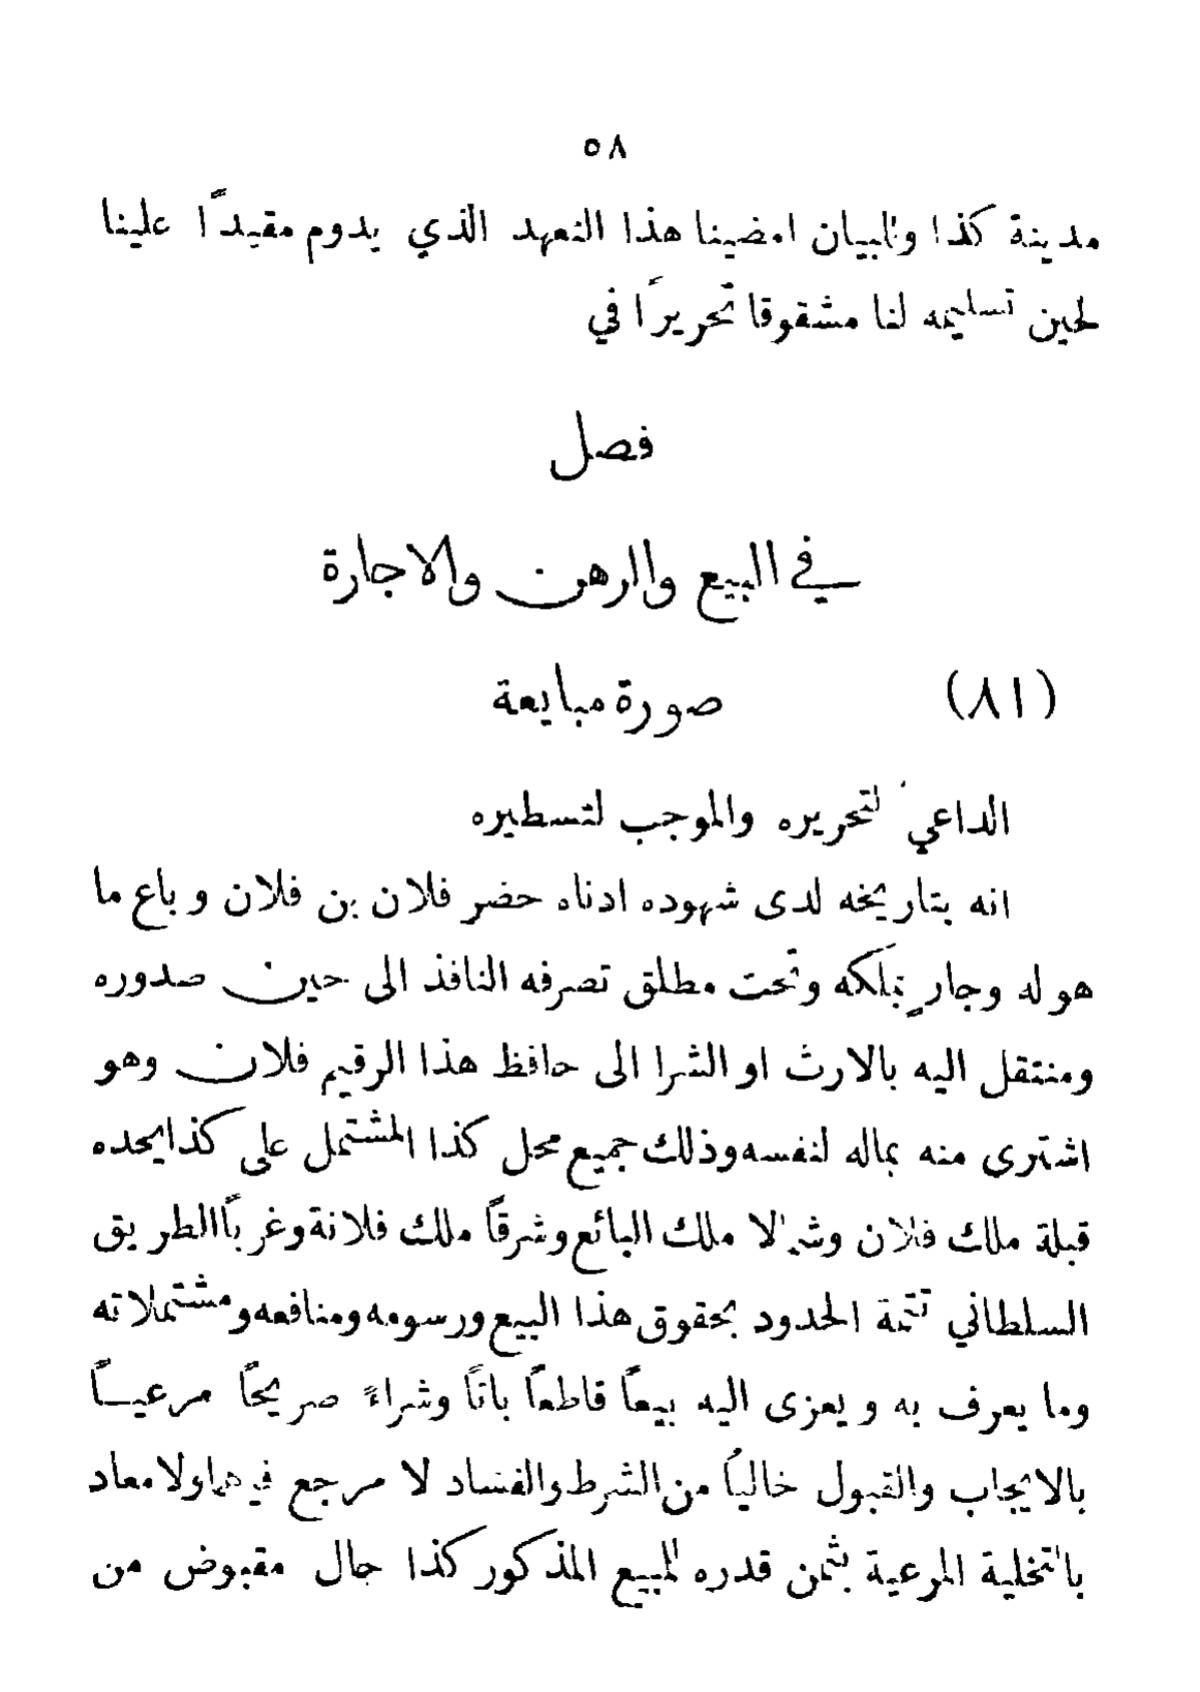 ٥٨
مدينة كذا وللبيان امضينا هذا التعهد الذي يدوم مقيدًا علينا
لحين تسليمه لنا مشقوقا تحريرًا في
فصل
في البيع والرهن والاجارة
(٨١) صورة مبايعة
الداعي لتحريره والموجب لتسطيره
انه بتاريخه لدى شهوده ادناه حضر فلان بن فلان وباع ما
هوله وجارٍ بملكه وتحت مطلق تصرفه النافذ الى حين صدوره
ومنتقل اليه بالارث او الشرا الى حافظ هذا الرقيم فلان وهو
اشترى منه بماله لنفسه وذلك جميع محل كذا المشتمل على كذا يحده
قبلة ملك فلان وشمالا ملك البائع وشرقاً ملك فلانة وغرباً الطريق
السلطاني تتمة الحدود بحقوق هذا البيع ورسومه ومنافعه ومشتملاته
وما يعرف به ويعزى اليه بيعاً قاطعاً باتاً وشراءً صريحاً مرعيــاً
بالايجاب والقبول خالياً من الشرط والفساد لا مرجع فيهما ولا معاد
بالتخلية المرعية بثمن قدره للمبيع المذكور كذا حال مقبوض من